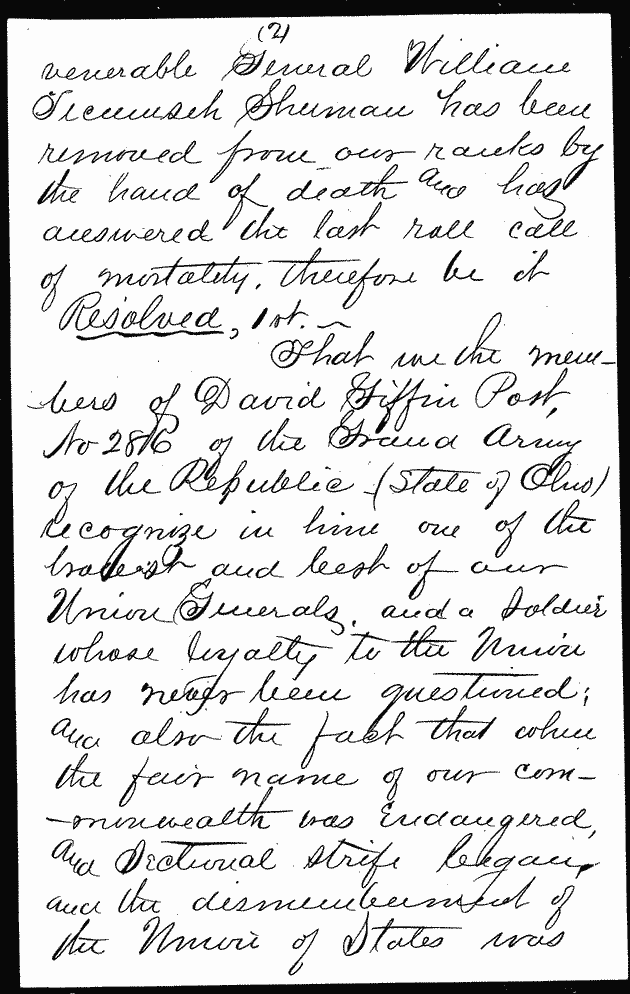 (2)
venerable General William
Tecumseh Sherman has been
removed from our ranks by
the hand of death and has
answered the last roll call
of mortality, therefore be it
Resolved, 1st. ~
That we the mem-
-bers of David Giffin Post,
No 286 of the Grand Army
of the Republic (State of Ohio)
recognize in him one of the
bravest and best of our
Union Generals, and a soldier
whose loyalty to the Union
has never been questioned;
and also the fact that when
the fair name of our com-
-monwealth was endangered,
and sectional strife began,
and the dismemberment of
the Union of States was